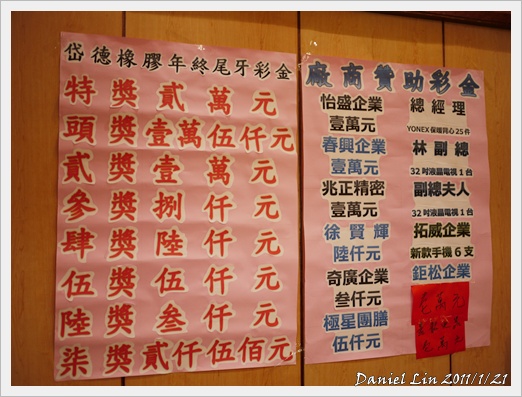 岱德橡膠年終尾牙彩金
特獎貳萬元
頭獎壹萬伍仟元
貳獎壹萬元
參獎捌仟元
肆獎陸仟元
伍獎伍仟元
陸獎叁仟元
柒獎貳仟伍佰元
廠商贊助彩金
怡盛企業
壹萬元
春興企業
壹萬元
兆正精密
壹萬元
徐賢輝
陸仟元
奇廣企業
叁仟元
極星團膳
伍仟元
總經理
YONEX保暖背心25件
林副總
32吋液晶電視1台
副總夫人
32吋液晶電視1台
拓威企業
新款手機6支
鉅松企業
壱萬元
壱萬元
Daniel Lin 2011/1/21